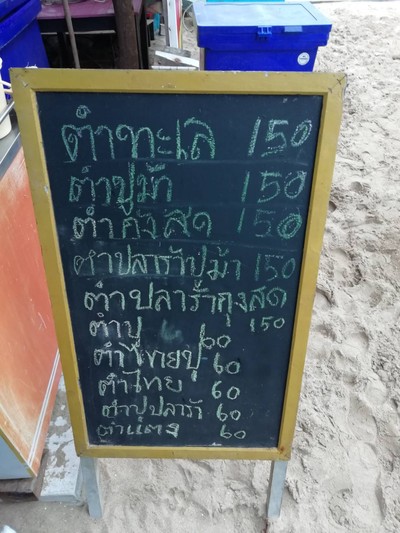 ตำทะเล 150
ตำปูม้า 150
ตำกุ้งสด 150
ตำปลาร้าปูม้า 150
ตำปลาร้ากุงสด
150
ตำปู 60
ตำไทยปู 60
ตำไทย 60
ตำปูปลาร้า 60
ตำแตง 60